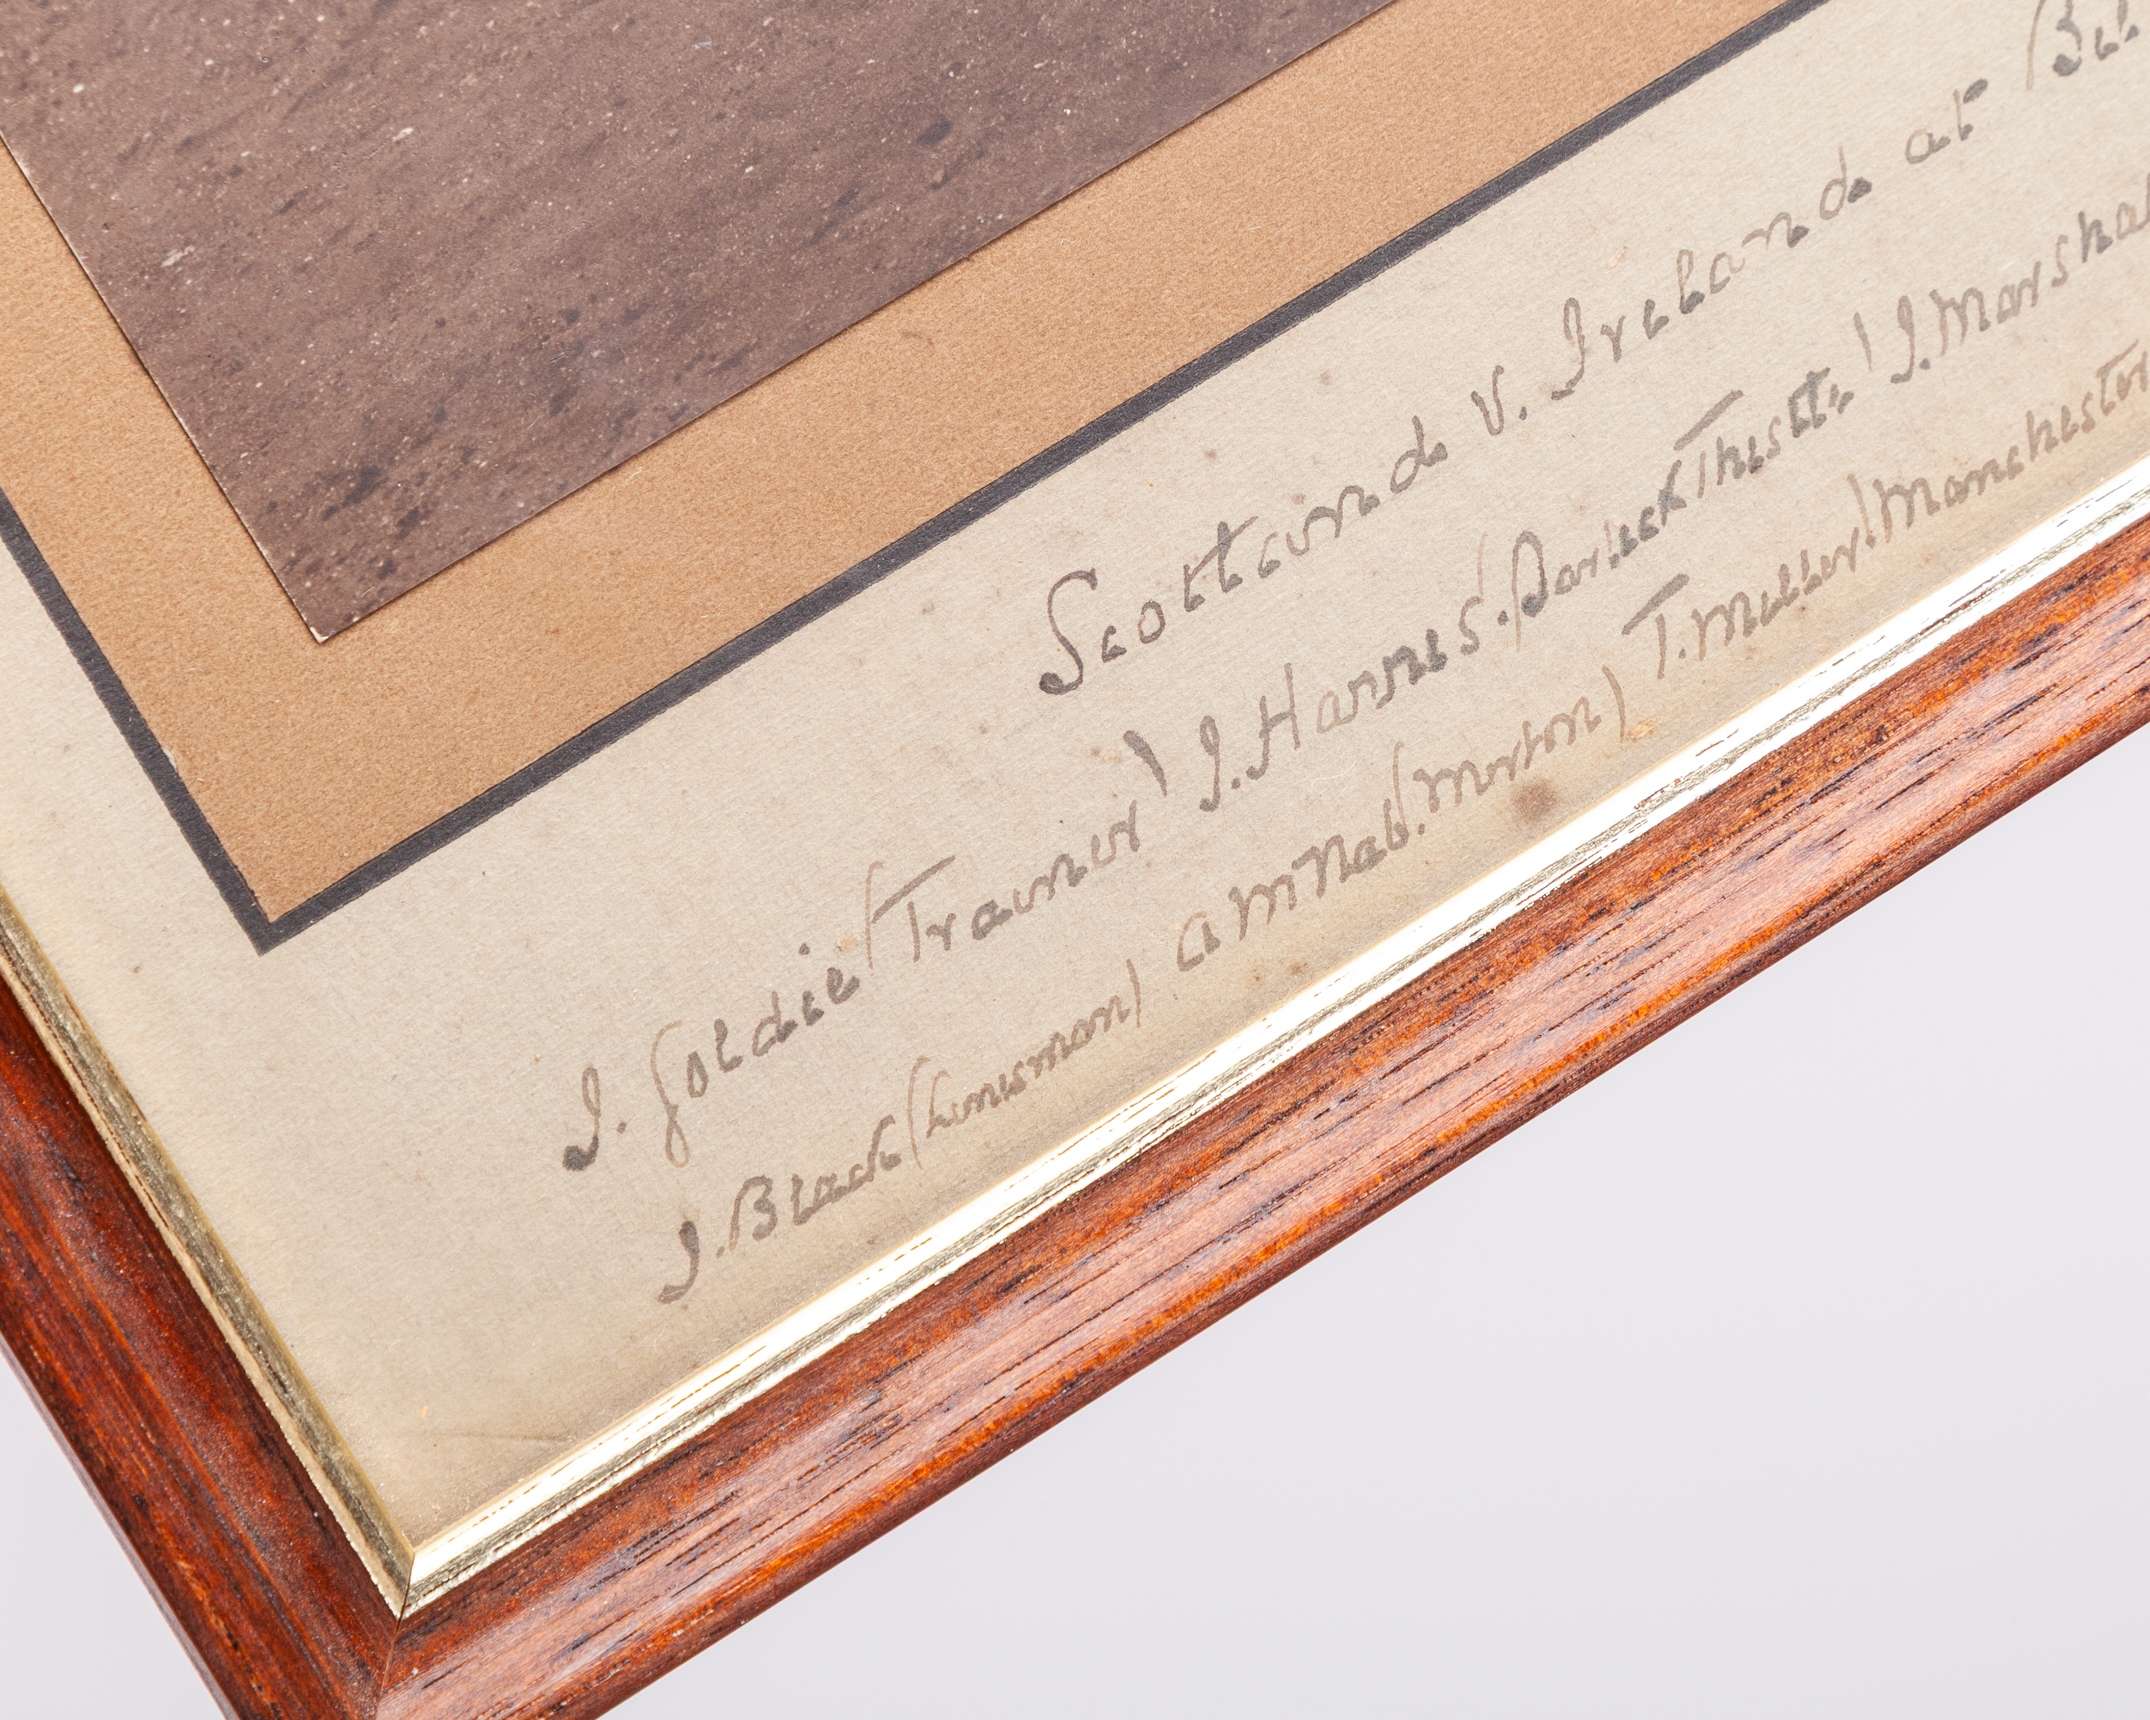 Scotland v. Ireland at Bel
J. Goldie (Trainer) J. Harnes. Partick Thistle) J. Marshal
J. Black (Linesman) a mcNab. (morton) T. Miller. (Manchester